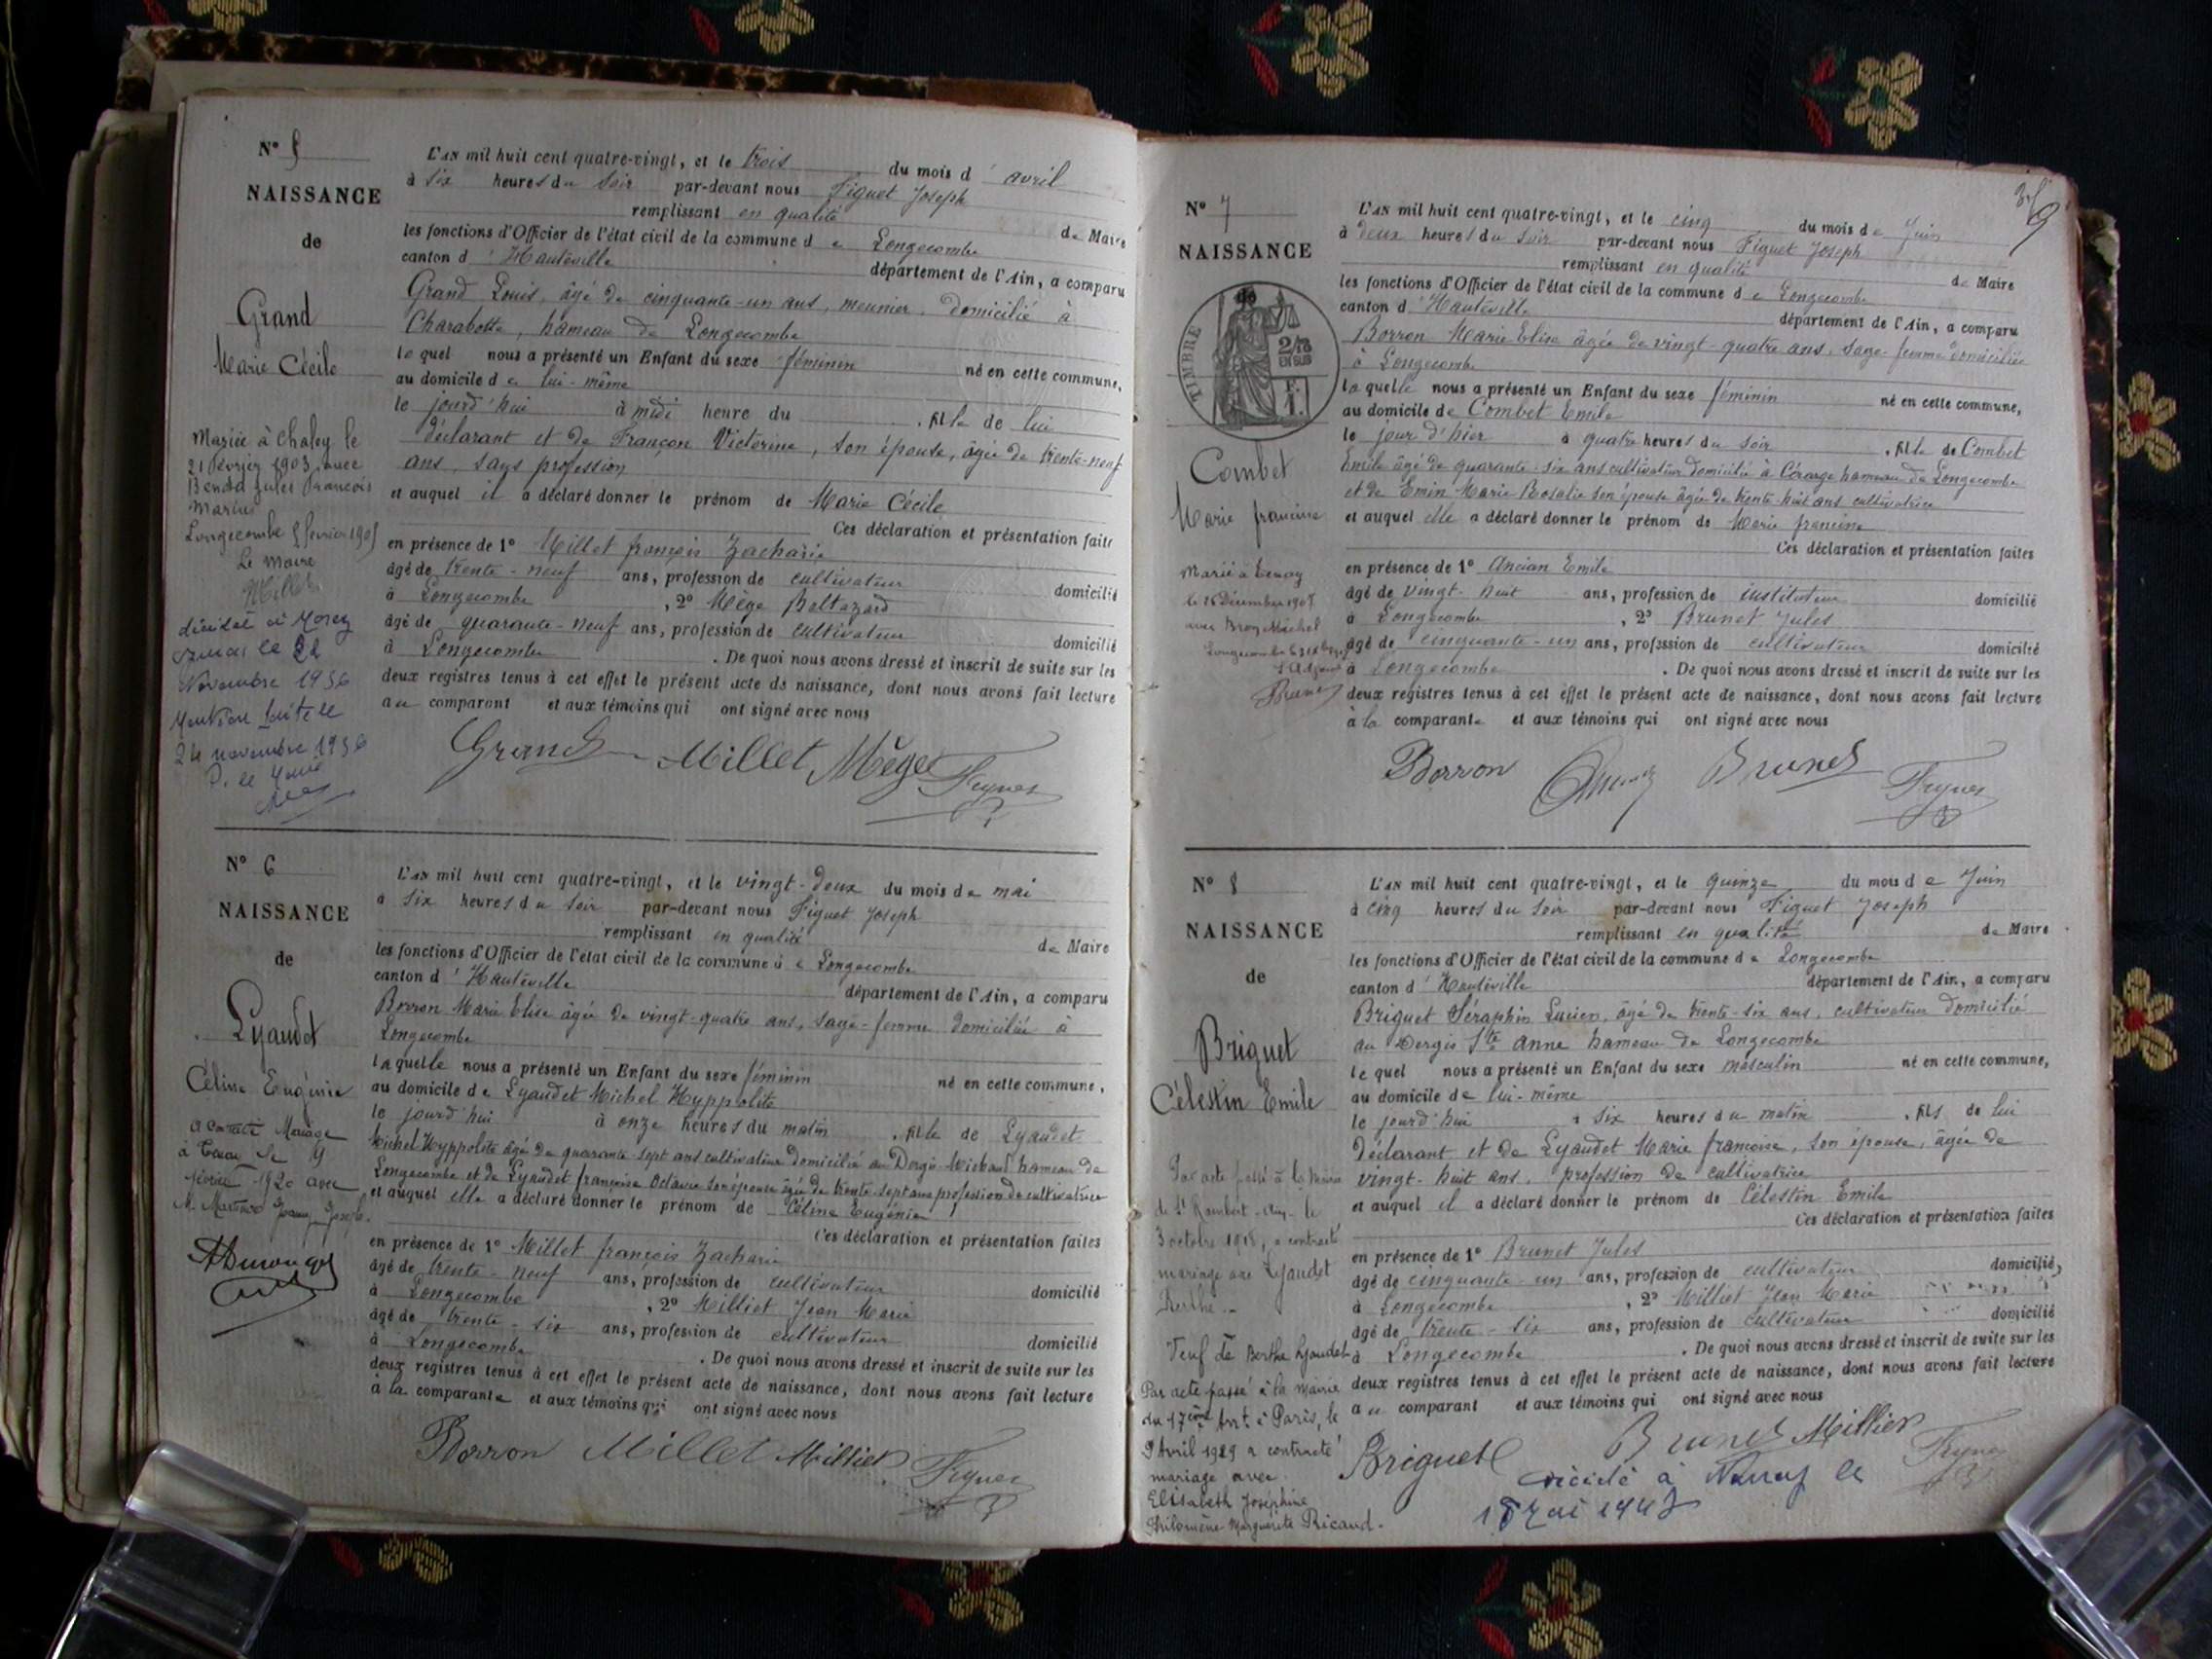 N° 5
NAISSANCE
de
Grand
Marie Cécile
Mariée à Chaley le
21 février 1903 avec
Benda Jules François
Marius
Longecombe 5 février 190
Le maire
Millet
décédée à Morez
le 22
Novembre 1936
Mention faite le
24 novembre 1936
P. le Maire
L'AN mil huit cent quatre-vingt, et le trois du mois d' avril
à six heures du soir par-devant nous Figuet Joseph
remplissant en qualité de Maire
les fonctions d'Officier de l'état civil de la commune de Longecombe
canton d' Hauteville département de l'Ain, a comparu
Grand Louis, âgé de cinquante-un ans, meunier, domicilié à
Charabotte, hameau de Longecombe
lequel nous a présenté un Enfant du sexe féminin né en cette commune,
au domicile de lui-même
le jourd'hui à midi heure du , fille de lui
déclarant et de Françon Victorine, son épouse, âgée de trente-neuf
ans, sans profession
et auquel il a déclaré donner le prénom de Marie Cécile
Ces déclaration et présentation faite
en présence de 1° Millet françois Zacharie
âgé de trente-neuf ans, profession de cultivateur domicilié
à Longecombe , 2° Mège Baltazard
âgé de quarante-neuf ans, profession de cultivateur domicilié
à Longecombe . De quoi nous avons dressé et inscrit de suite sur les
deux registres tenus à cet effet le présent acte de naissance, dont nous avons fait lecture
au comparant et aux témoins qui ont signé avec nous
Grand Millet Mège Figuet
N° 6
NAISSANCE
de
Lyaudet
Céline Eugénie
a contracté Mariage
à Tenay le 9
février 1920 avec
M. Joseph
L'AN mil huit cent quatre-vingt, et le vingt-deux du mois de mai
à six heures du soir par-devant nous Figuet Joseph
remplissant en qualité de Maire
les fonctions d'Officier de l'état civil de la commune de Longecombe
canton d' Hauteville département de l'Ain, a comparu
Borron Marie Elise âgée de vingt-quatre ans, sage-femme domiciliée à
Longecombe
laquelle nous a présenté un Enfant du sexe féminin né en cette commune,
au domicile de Lyaudet Michel Hyppolite
le jourd'hui à onze heures du matin , fille de Lyaudet
Michel Hyppolite âgé de quarante-sept ans cultivateur domicilié au Dergis Michaud hameau de
Longecombe et de Lyaudet françoise Octavie son épouse âgée de trente-sept ans profession de cultivatrice
et auquel elle a déclaré donner le prénom de Céline Eugénie
Ces déclaration et présentation faites
en présence de 1° Millet françois Zacharie
âgé de trente-neuf ans, profession de cultivateur domicilié
à Longecombe , 2° Milliet Jean Marie
âgé de trente-six ans, profession de cultivateur domicilié
à Longecombe . De quoi nous avons dressé et inscrit de suite sur les
deux registres tenus à cet effet le présent acte de naissance, dont nous avons fait lecture
à la comparante et aux témoins qui ont signé avec nous
Borron Millet Milliet Figuet
N° 7
NAISSANCE
de
TIMBRE
2/10
EN SUS
Combet
Marie francine
Marié à Tenay
le 26 Décembre 190
avec Broy Michel
Brunet
9
L'AN mil huit cent quatre-vingt, et le cinq du mois de Juin
à deux heures du soir par-devant nous Figuet Joseph
remplissant en qualité de Maire
les fonctions d'Officier de l'état civil de la commune de Longecombe
canton d' Hauteville département de l'Ain, a comparu
Borron Marie Elise âgée de vingt-quatre ans, sage-femme domiciliée
à Longecombe
laquelle nous a présenté un Enfant du sexe féminin né en cette commune,
au domicile de Combet Emile
le jour d'hier à quatre heures du soir , fille de Combet
Emile âgé de quarante-six ans cultivateur domicilié à hameau de Longecombe
et de Emin Marie Rosalie son épouse âgée de trente huit ans cultivatrice
et auquel elle a déclaré donner le prénom de Marie francine
Ces déclaration et présentation faites
en présence de 1° Ancian Emile
âgé de vingt-huit ans, profession de instituteur domicilié
à Longecombe , 2° Brunet Jules
âgé de cinquante-un ans, profession de cultivateur domicilié
à Longecombe . De quoi nous avons dressé et inscrit de suite sur les
deux registres tenus à cet effet le présent acte de naissance, dont nous avons fait lecture
à la comparante et aux témoins qui ont signé avec nous
Borron Brunet Figuet
N° 8
NAISSANCE
de
Briguet
Célestin Emile
Par acte passé à la mairie
de St Rambert-Ain-le
3 octobre 1918, a contracté
mariage avec Lyaudet
Berthe.-
Veuf de Berthe Lyaudet
Par acte passé à la mairie
du 17ème Arrt. à Paris, le
9 Avril 1929 a contracté
mariage avec
Elisabeth Joséphine
Philomène Marguerite Ricaud.
L'AN mil huit cent quatre-vingt, et le quinze du mois de Juin
à cinq heures du soir par-devant nous Figuet Joseph
remplissant en qualité de Maire
les fonctions d'Officier de l'état civil de la commune de Longecombe
canton d' Hauteville département de l'Ain, a comparu
Briguet Séraphin Lucien, âgé de trente-six ans, cultivateur domicilié
au Dergis Ste anne hameau de Longecombe
lequel nous a présenté un Enfant du sexe masculin né en cette commune,
au domicile de lui-même
le jourd'hui à six heures du matin , fils de lui
déclarant et de Lyaudet Marie françoise, son épouse, âgée de
vingt-huit ans, profession de cultivatrice
et auquel il a déclaré donner le prénom de Célestin Emile
Ces déclaration et présentation faites
en présence de 1° Brunet Jules
âgé de cinquante-un ans, profession de cultivateur domicilié,
à Longecombe , 2° Milliet Jean Marie
âgé de trente-six ans, profession de cultivateur domicilié
à Longecombe . De quoi nous avons dressé et inscrit de suite sur les
deux registres tenus à cet effet le présent acte de naissance, dont nous avons fait lecture
au comparant et aux témoins qui ont signé avec nous
Briguet Brunet Milliet Figuet
décédé à le
mai 194